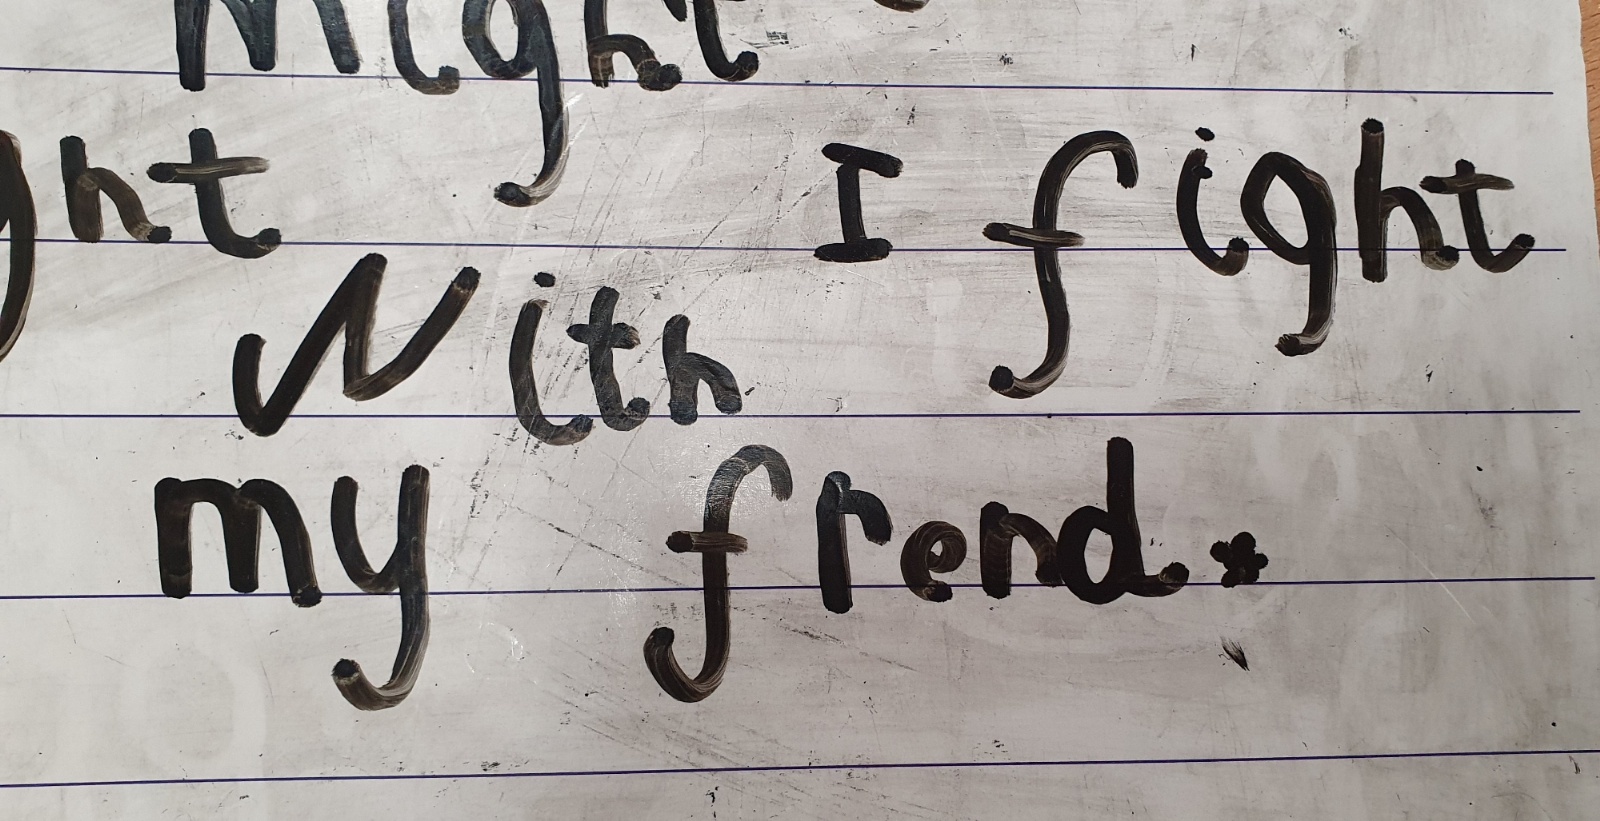 might
ght I fight
with
my frend.